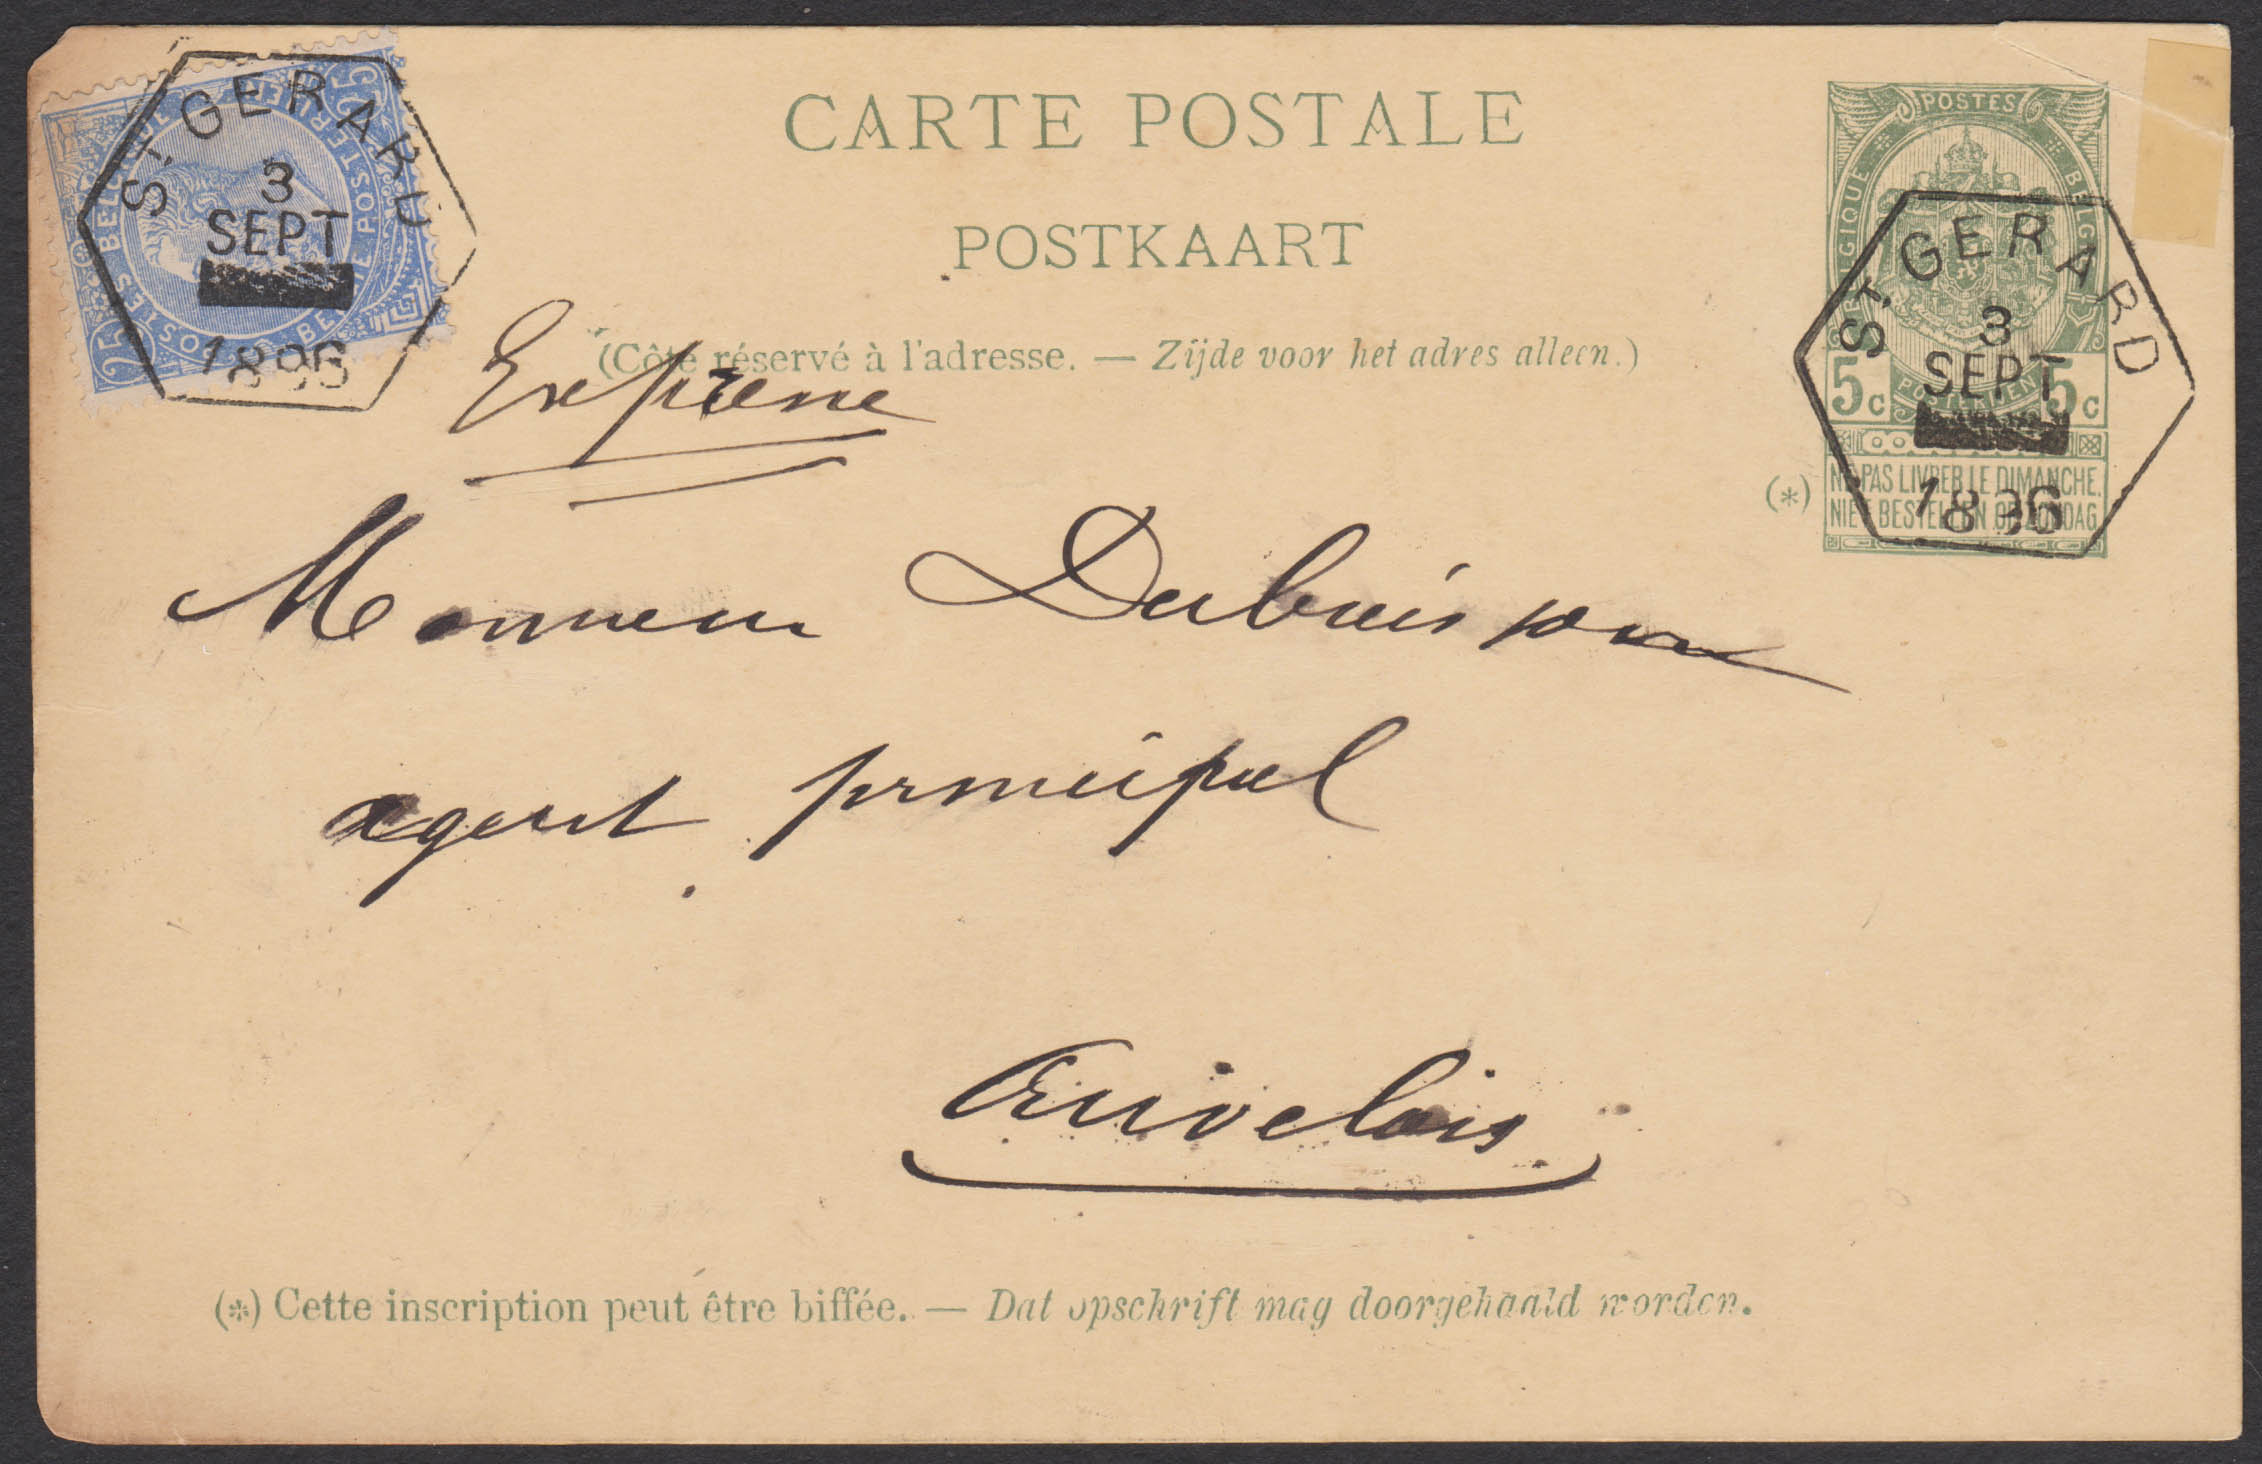 CARTE POSTALE
POSTKAART
(Côté réservé à l'adresse. — Zijde voor het adres alleen.)
ST. GERARD
3
SEPT
1896
25 BELGIQUE POSTES
BELGIE POSTERIJEN 25
POSTES
BELGIQUE BELGIE
5c POSTERIJEN 5c
ST. GERARD
3
SEPT
1896
(*) NE PAS LIVRER LE DIMANCHE.
NIET BESTELLEN OP ZONDAG
Expresse
Monsieur Dubuisson
agent principal
Auvelais
(*) Cette inscription peut être biffée. — Dat opschrift mag doorgehaald worden.